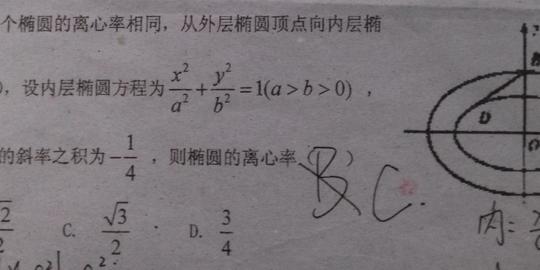 个椭圆的离心率相同，从外层椭圆顶点向内层椭
)，设内层椭圆方程为 x²/a² + y²/b² = 1(a > b > 0) ，
的斜率之积为 -1/4 ，则椭圆的离心率 ( )
B C.
C. √3/2 D. 3/4
D
内: